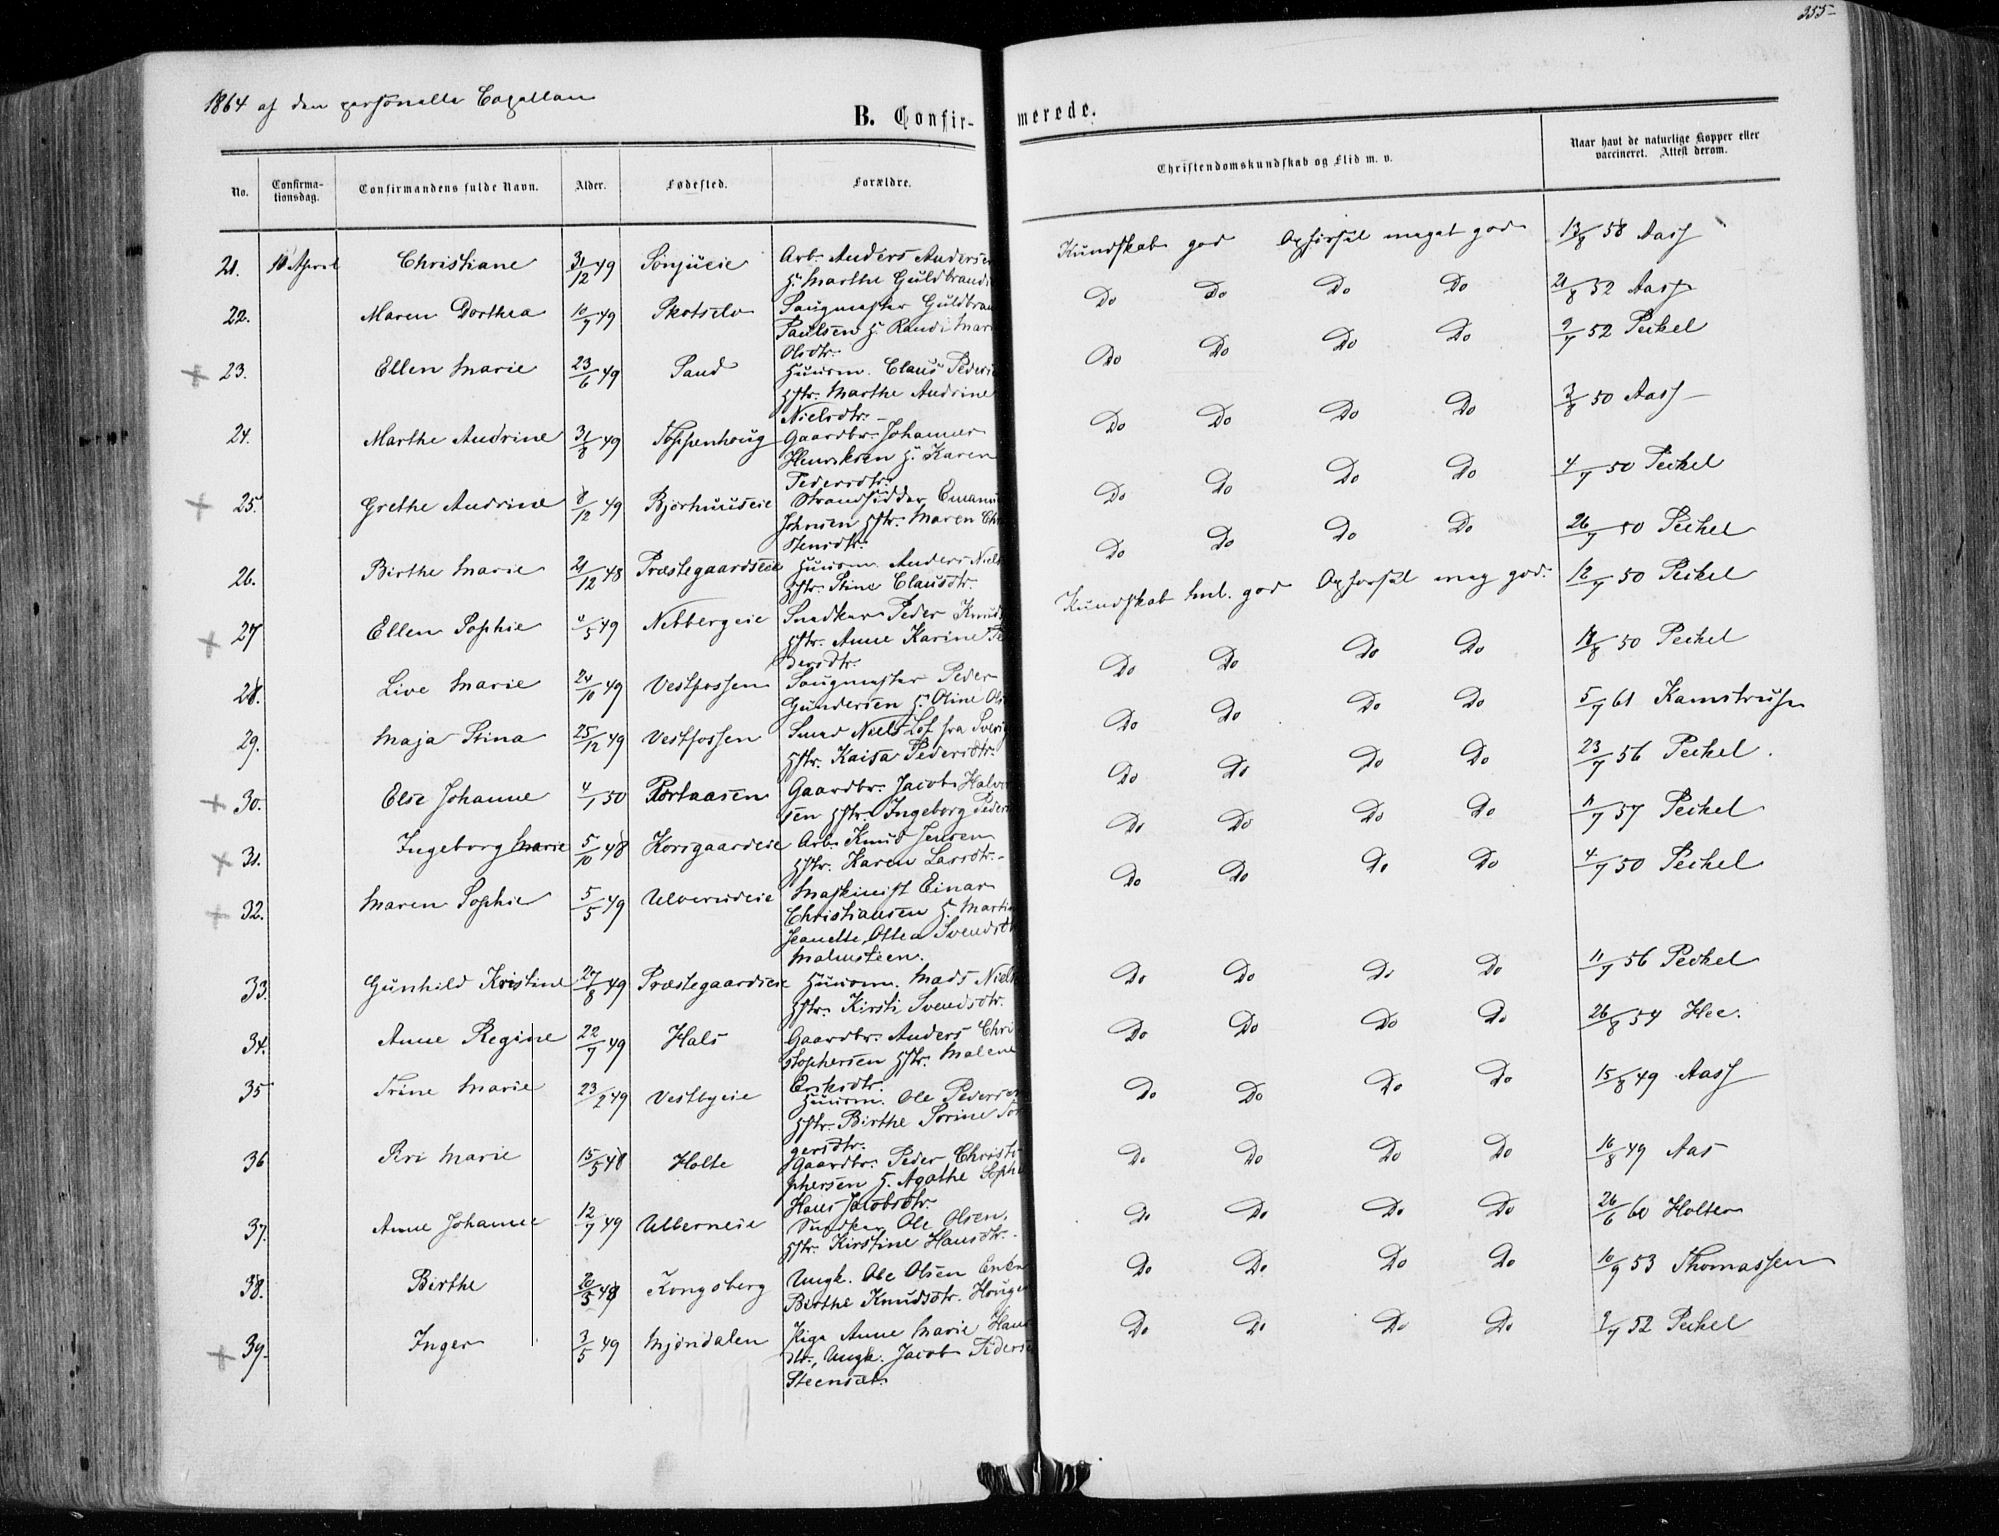 355
1864 af den personelle Capellan
B. Confirmerede.
No. Confirmationsdag. Confirmandens fulde Navn. Alder. Fødested. Forældre. Christendomskundskab og Flid m. v. Naar havt de naturlige Kopper eller vaccineret. Attest derom.
21. 10 April Christiane 31/12 49 Anders Andersen Kundskab god Opførsel meget god 13/8 58 Aass
Marthe Guldbrands
22. Maren Dorthea 10/7 49 Skotselv Saugmester Guldbran Do Do Do Do 21/8 52 Aass
Paulsen Randi Mari
Olsdtr.
23. Ellen Marie 23/6 49 Sand Huusm. Claus Peders Do Do Do Do 9/7 52 Peckel
Hstr. Marthe Andrine
Nielsdtr.
24. Marthe Andrine 31/8 49 Toppenhoug Gaardbr. Johannes Do Do Do Do 3/8 50 Aass
Henriksen H. Karen
Pedersdtr.
25. Grethe Andrine 8/12 49 Bjørhuuseie Strandsidder Emanu Do Do Do Do 4/7 50 Peckel
Johnsen Hstr. Maren Chr
stensdtr.
26. Birthe Marie 21/12 48 Præstegaardseie Huusm. Anders Niels Do Do Do Do 26/7 50 Peckel
Hstr. Stine Clausdtr.
27 Ellen Sophie 5 49 Nebbergeie Snedker Peder Knuds Kundskab tml. god Opførsel meg god. 12/7 50 Peckel
Hstr. Anne Karine Pe
dersdtr.
28. Live Marie 24/10 49 Vestfossen Saugmester Peder Do Do Do Do 18/8 50 Peckel
Gundersen H. Oline Ols
29. Maja Stina 25/12 49 Vestfossen Smed Niels Løf fra Sverig Do Do Do Do 5/7 61 Kamstrup
Hstr. Kaisa Pedersdtr.
30. Else Johanne 4/1 50 Portaasen Gaardbr. Jacob Halvor Do Do Do Do 23/7 56 Peckel.
sen Hstr. Ingeborg Peders
31. Ingeborg Marie 5/10 48 Korsgaardeie Arb. Knud Jensen Do Do Do Do 11/7 57 Peckel
Hstr. Karen Larsdtr.
32. Maren Sophie 5/5 49 Maskinist Einar Do Do Do Do 4/7 50 Peckel
Christiansen H. Martin
Jeanette Ottea Svendsdt
Malmsteen.
33. Gunhild Kristine 27/8 49 Præstegaardseie Huusm. Mads Niels Do Do Do Do 11/7 56 Peckel
Hstr. Kirsti Svendsdtr.
34. Anne Regine 22/7 49 Hals Gaardbr. Anders Chri Do Do Do Do 26/8 54 Hee.
stophersen Hstr. Malene
Eriksdtr.
35 Trine Marie 23/2 49 Vestbyeie Huusm. Ole Pedersen Do Do Do Do 15/8 49 Aass
Hstr. Birthe Sorine Tor
gersdtr.
36 Siri Marie 15/5 48 Holte Gaardbr. Peder Christo Do Do Do Do 16/8 49 Aas
phersen H. Agathe Sophi
Hans Jacobsdtr.
37. Anne Johanne 12/7 49 Ulverneie Snedker Ole Olsen. Do Do Do Do 26/6 60 Holter
Hstr. Kirstine Hansdtr.
38. Birthe 20/5 48 Kongsberg Ungk. Ole Olsen Enke Do Do Do Do 10/9 53 Thomassen
Birthe Knudsdtr. Houge
39. Inger 3/5 49 Mjøndalen Pige Anne Marie Hans Do Do Do Do 7 52 Peckel
dtr., Ungk. Jacob Pederse
Steensæt.